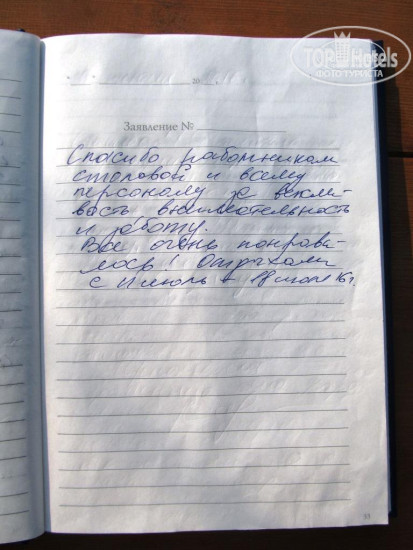 TOPHotels
ФОТО ТУРИСТА
20
Заявление №
Спасибо работникам
столовой и всему
персоналу за вежли-
вость внимательность
и заботу.
Все очень понрави-
лось! Отдыхали
с 11 июль + 18 июля 16г.